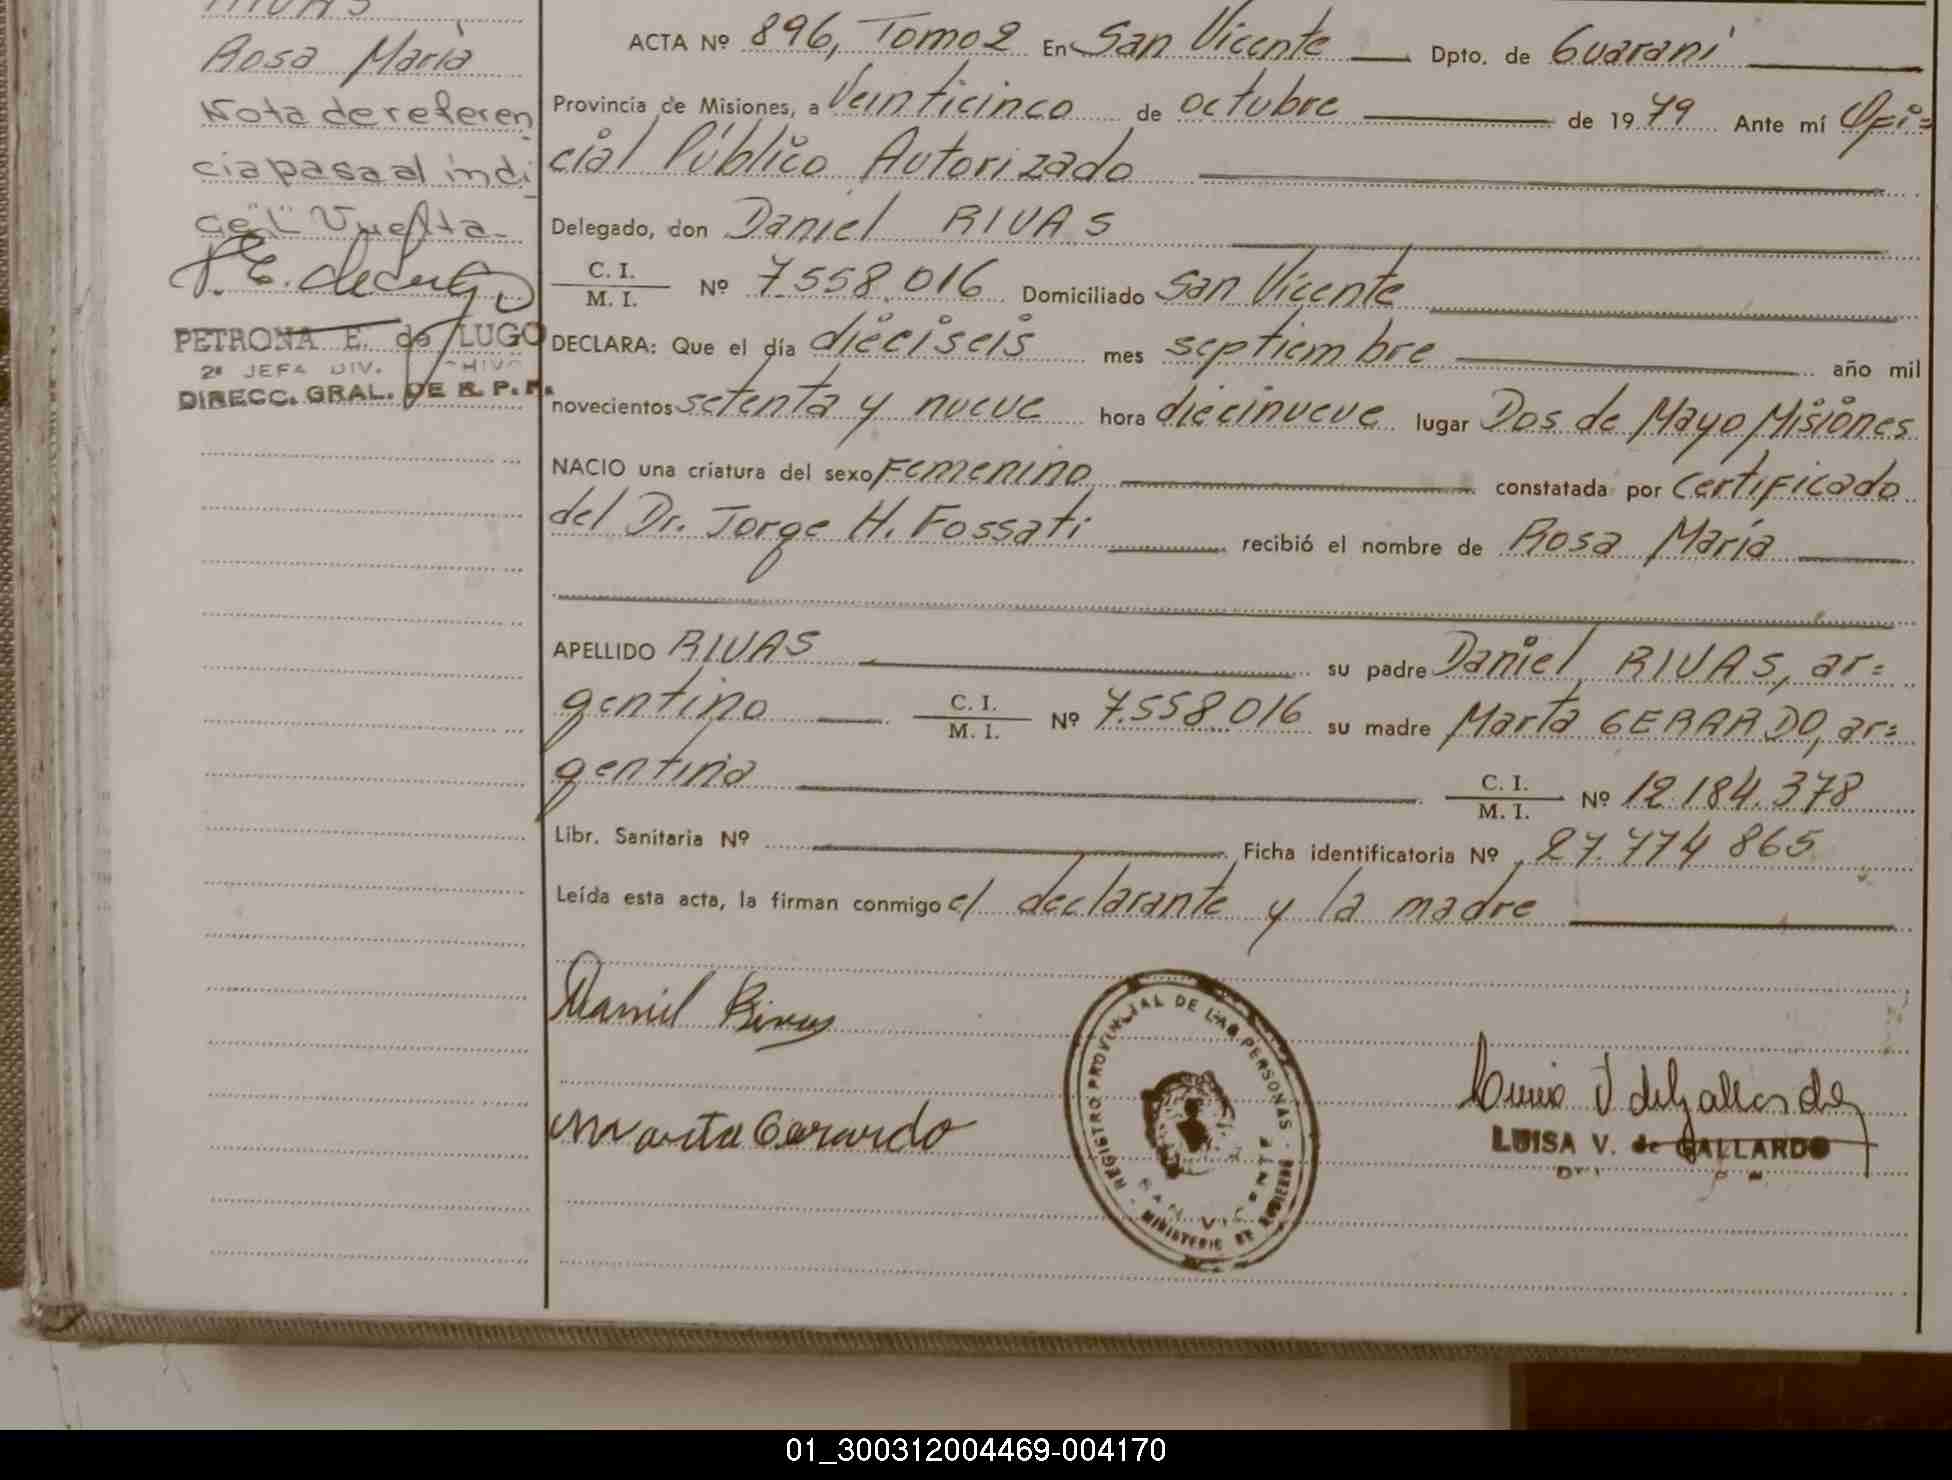 RIVAS
Rosa María
Nota de referen
cia pasa al indi
ce "L" Vuelta.
PETRONA E. de LUGO
2ª JEFA DIV.
DIRECC. GRAL. DE R. P. P.
ACTA Nº 896, Tomo 2 En San Vicente Dpto. de Guaraní
Provincia de Misiones, a Veinticinco de octubre de 1979 Ante mí Ofi=
cial Público Autorizado
Delegado, don Daniel RIVAS
C. I.
M. I. Nº 7.558.016 Domiciliado San Vicente
DECLARA: Que el día dieciseis mes septiembre año mil
novecientos setenta y nueve hora diecinueve lugar Dos de Mayo Misiones
NACIO una criatura del sexo Femenino constatada por certificado
del Dr. Jorge H. Fossati recibió el nombre de Rosa María
APELLIDO RIVAS su padre Daniel RIVAS, ar=
gentino C. I.
M. I. Nº 7.558.016 su madre Marta GERARDO, ar=
gentina C. I.
M. I. Nº 12.184.378
Libr. Sanitaria Nº Ficha identificatoria Nº 27.774.865
Leída esta acta, la firman conmigo el declarante y la madre
Daniel Rivas
Marta Gerardo
REGISTRO PROVINCIAL DE LAS PERSONAS
SAN VICENTE
MINISTERIO DE GOBIERNO
LUISA V. de GALLARDO
01_300312004469-004170